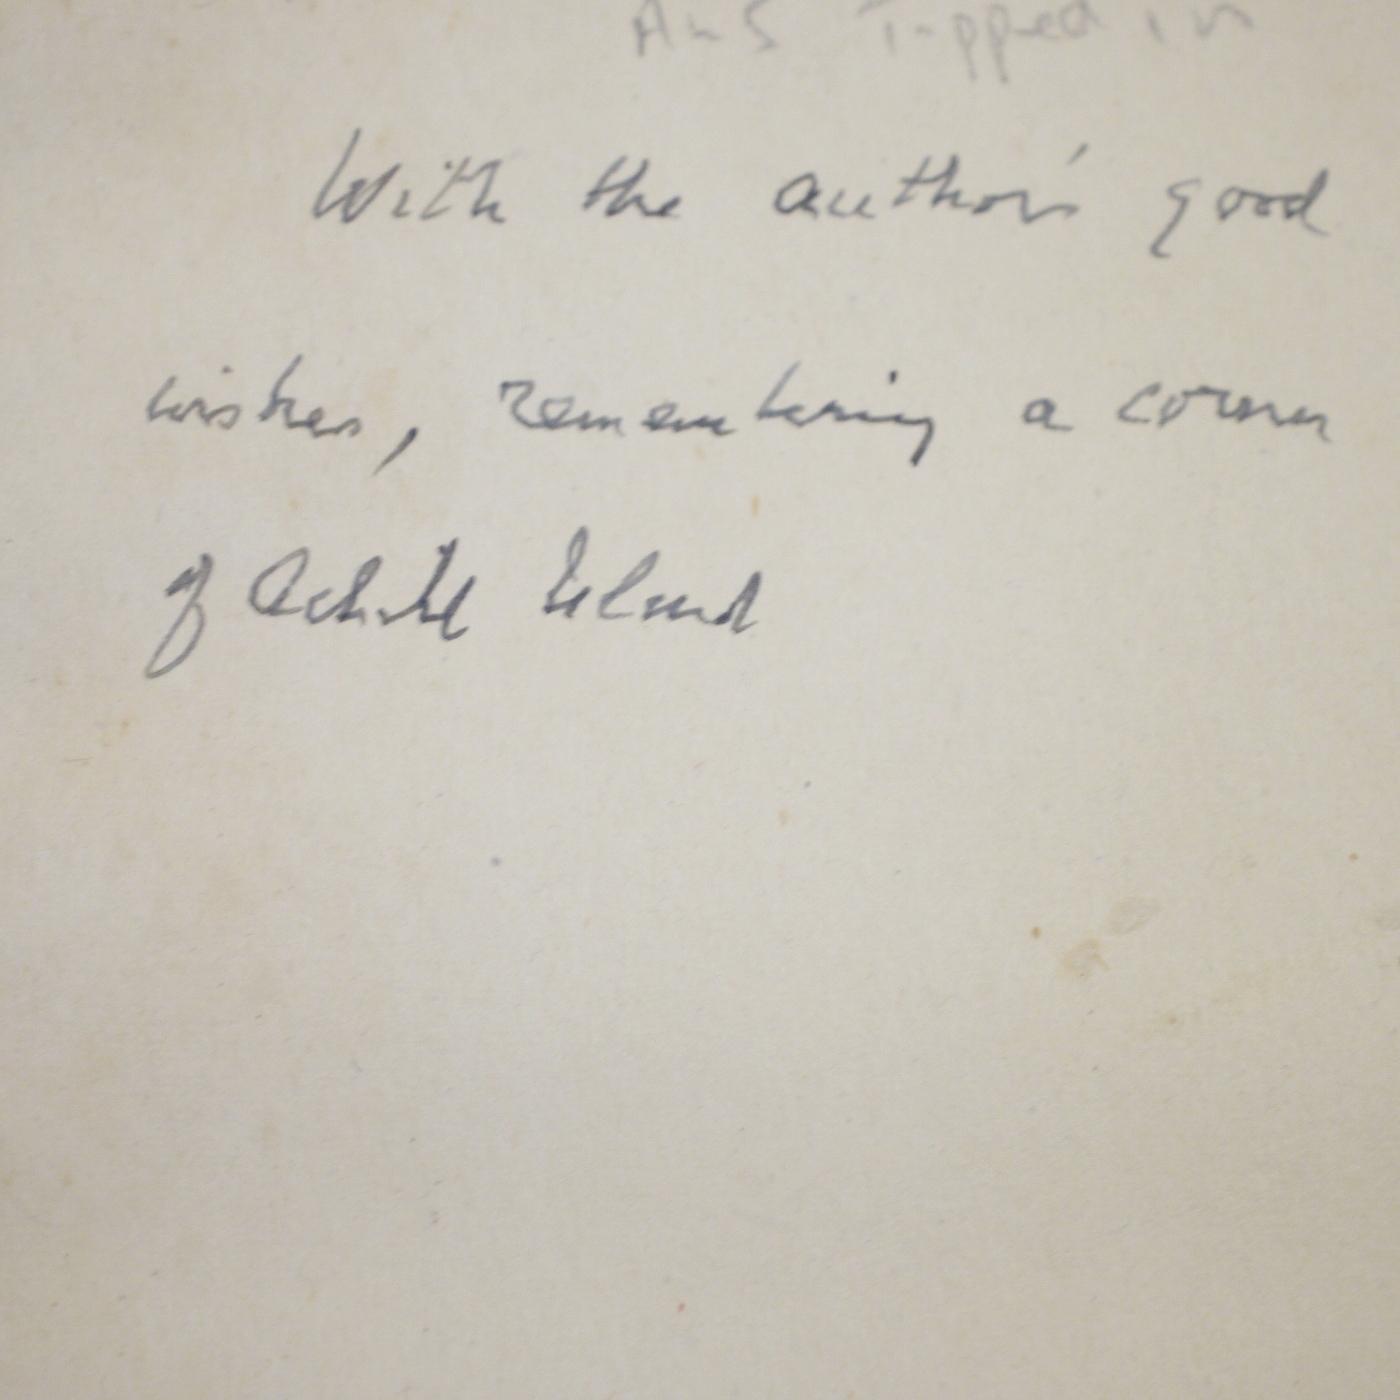 Tipped in
With the author's good
wishes, remembering a corner
of Achill Island